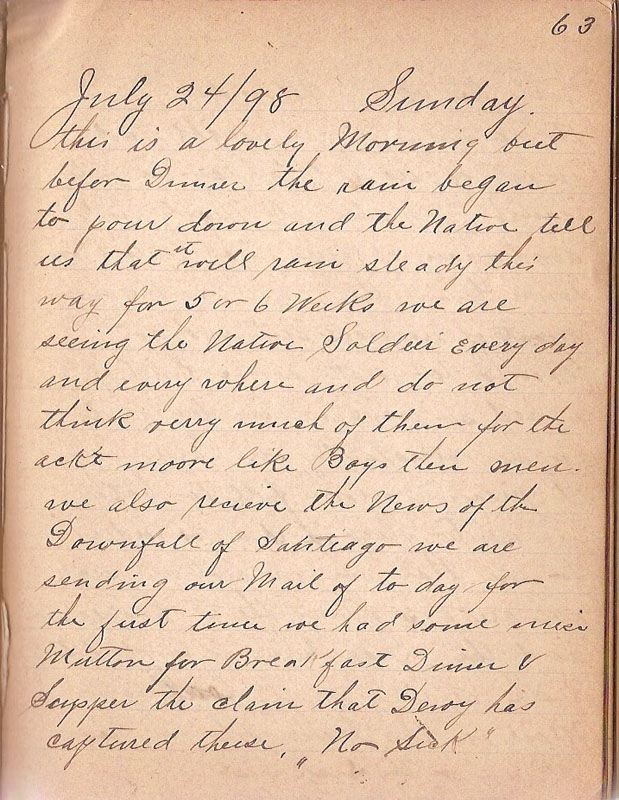 63
July 24/98 Sunday.
this is a lovely Morning but
befor Dinner the rain began
to pour down and the Native tell
us that it will rain steady this
way for 5 or 6 Weeks we are
seeing the Native Soldier Every day
and every where and do not
think verry much of them for the
ackt moore like Boys then men.
we also recieve the News of the
Downfall of Santiago we are
sending our Mail of to day for
the first time we had some nice
Mutton for Breakfast Dinner &
Supper the claim that Dewy has
captured theuse, „No Sick"